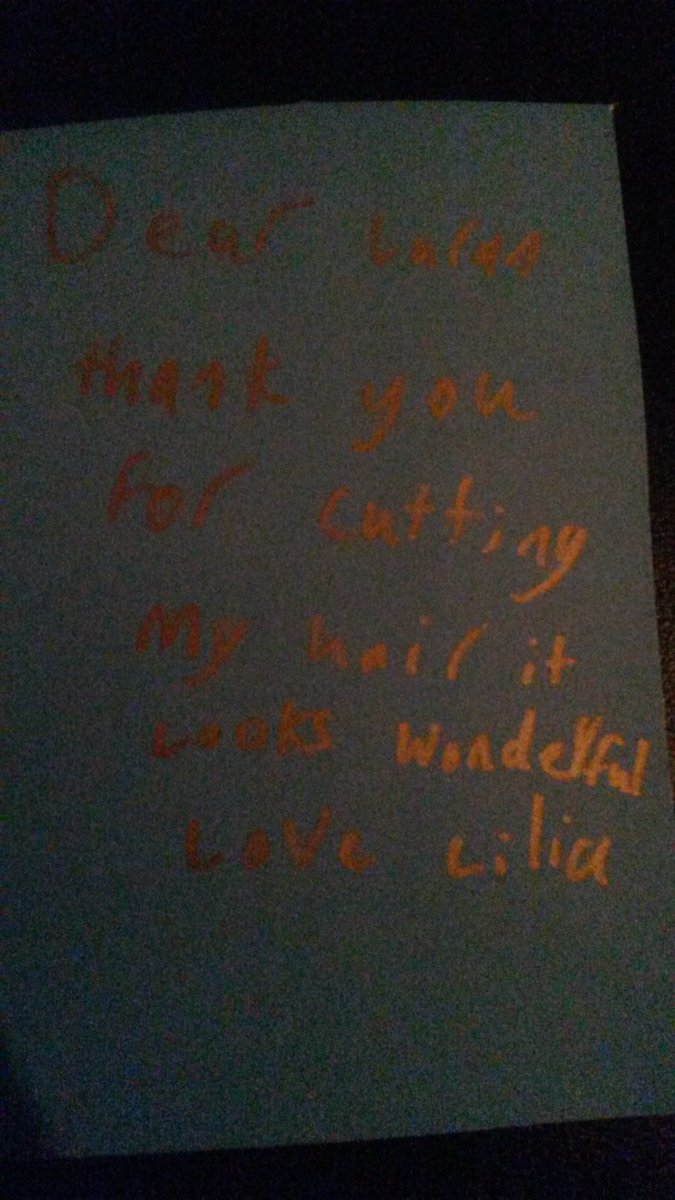 Dear Laran
thank you
for cutting
My hair it
Looks wonderful
Love Lilia